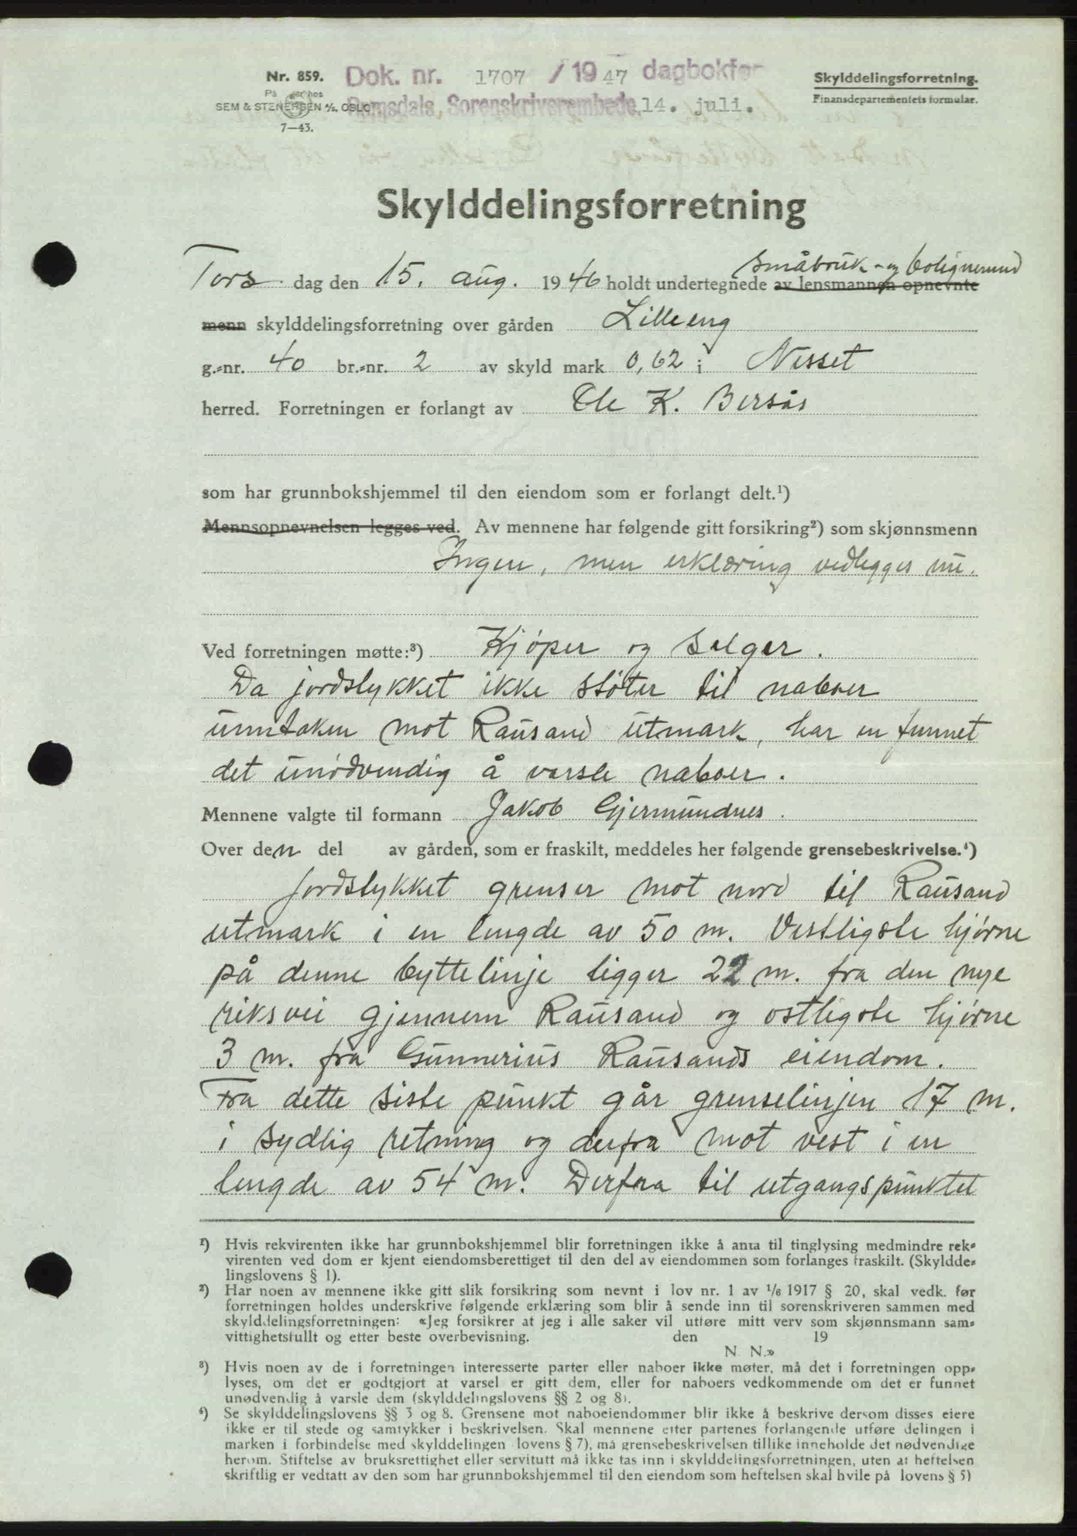 Nr. 859.
Dok. nr. 1707 / 1947 dagbokfør
Romsdals, Sorenskriverembede, 14. juli.
På hos
SEM & STENERSEN A/S, OSLO
7—43.
Skylddelingsforretning.
Finansdepartementets formular.
Skylddelingsforretning
småbruk- og bolignemnd
Tors dag den 15. aug. 1946 holdt undertegnede av lensmannen opnevnte
menn skylddelingsforretning over gården Lilleeng
g.-nr. 40 br.-nr. 2 av skyld mark 0,62 i Nesset
herred. Forretningen er forlangt av Ole K. Bersås
som har grunnbokshjemmel til den eiendom som er forlangt delt.¹)
Mennsopnevnelsen legges ved. Av mennene har følgende gitt forsikring²) som skjønnsmenn
Ingen, men erklæring vedlegges nu.
Ved forretningen møtte:³) Kjøper og selger.
Da jordstykket ikke støter til naboer
unntaken mot Rausand utmark, har en funnet
det unødvendig å varsle naboer.
Mennene valgte til formann Jakob Gjermundnes.
Over den del av gården, som er fraskilt, meddeles her følgende grensebeskrivelse.⁴)
Jordstykket grenser mot nord til Rausand
utmark i en lengde av 50 m. Vestligste hjørne
på denne byttelinje ligger 22 m. fra den nye
riksvei gjennem Rausand og østligste hjørne
3 m. fra Gunnerius Rausands eiendom.
Fra dette siste punkt går grenselinjen 17 m.
i sydlig retning og derfra mot vest i en
lengde av 54 m. Derfra til utgangspunktet
¹) Hvis rekvirenten ikke har grunnbokshjemmel blir forretningen ikke å anta til tinglysing medmindre rek-
virenten ved dom er kjent eiendomsberettiget til den del av eiendommen som forlanges fraskilt. (Skyldde-
lingslovens § 1).
²) Har noen av mennene ikke gitt slik forsikring som nevnt i lov nr. 1 av 1/6 1917 § 20, skal vedk. før
forretningen holdes underskrive følgende erklæring som blir å sende inn til sorenskriveren sammen med
skylddelingsforretningen: «Jeg forsikrer at jeg i alle saker vil utføre mitt verv som skjønnsmann sam-
vittighetsfullt og etter beste overbevisning. den 19
N. N.»
³) Hvis noen av de i forretningen interesserte parter eller naboer ikke møter, må det i forretningen opp-
lyses, om det er godtgjort at varsel er gitt dem, eller for naboers vedkommende om det er funnet
unødvendig å varsle dem (skylddelingslovens §§ 2 og 8).
⁴) Se skylddelingslovens §§ 3 og 8. Grensene mot naboeiendommer blir ikke å beskrive dersom disses eiere
ikke er til stede og samtykker i beskrivelsen. Skal mennene etter partenes forlangende utføre delingen i
marken i forbindelse med skylddelingen lovens § 7), må grensebeskrivelsen tillike inneholde det nødvendige
herom. Stiftelse av bruksrettighet eller servitutt må ikke tas inn i skylddelingsforretningen, uten at heftelsen
skriftlig er vedtatt av den som har grunnbokshjemmel til den eiendom som heftelsen skal hvile på lovens § 5)